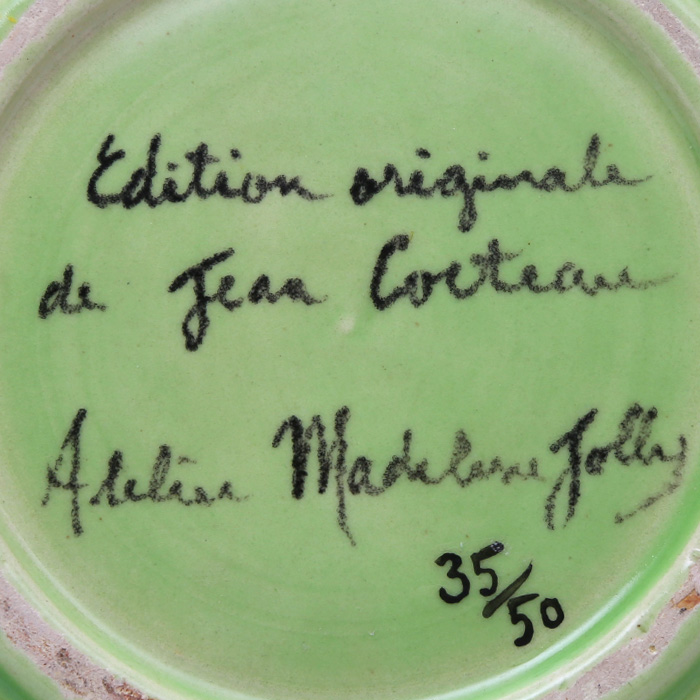 Edition originale
de Jean Cocteau
Atelier Madeleine Jolly
35/50